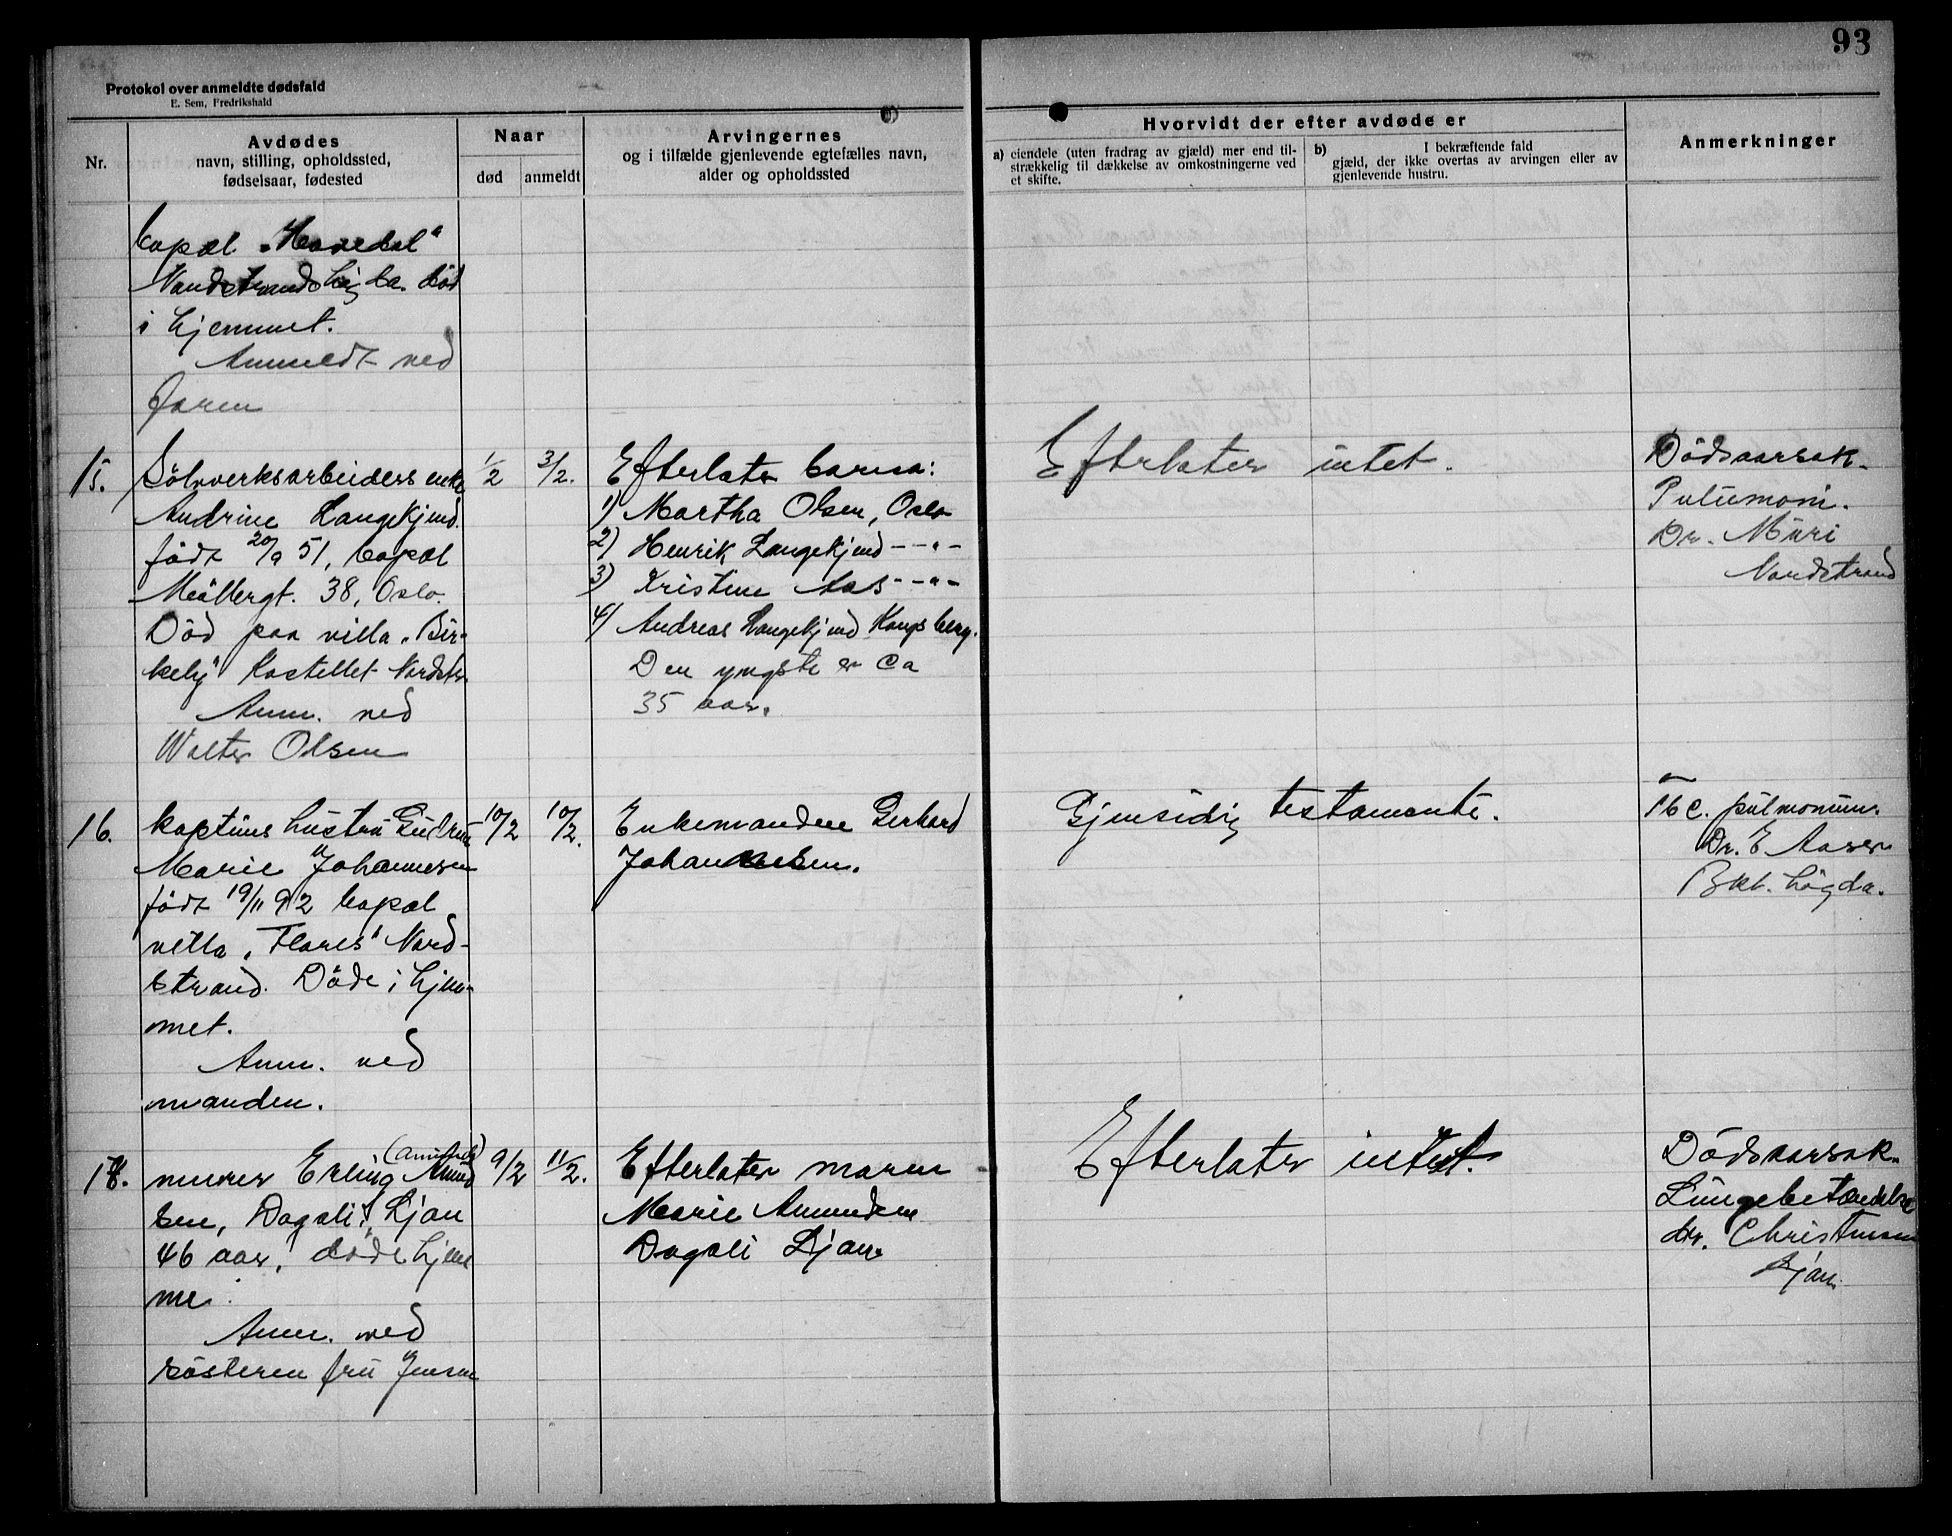 93
Protokol over anmeldte dødsfald
E. Sem, Fredrikshald
Nr.
Avdødes
navn, stilling, opholdssted,
fødselsaar, fødested
Naar
død
anmeldt
Arvingernes
og i tilfælde gjenlevende egtefælles navn,
alder og opholdssted
Hvorvidt der efter avdøde er
a) eiendele (uten fradrag av gjæld) mer end til-
strækkelig til dækkelse av omkostningerne ved
et skifte.
b) I bekræftende fald
gjæld, der ikke overtas av arvingen eller av
gjenlevende hustru.
Anmerkninger
bopæl
død
i hjemmet.
Anmeldt ved
faren
15.
Sölvverksarbeiders enke
Andrine Langekjend.
født 20/9 51, bopæl
Möllergt. 38, Oslo.
Död paa villa „Bir-
kely" Kastellet Nordstr.
Anm. ved
Walter Olsen
1/2
3/2.
Efterlater barn:
1) Martha Olsen, Oslo
2) Henrik Langekjend -–"–
3) Kristine Aas -–"–
4) Andreas Langekjend Kongsberg.
Den yngste er ca
35 aar.
Efterlater intet.
Dödsaarsak.
Dr. Müri
Nordstrand
16.
kapteins hustru Gudrun
Marie Johannesen
født 19/11 92 bopæl
villa „Flores" Nord-
strand. Döde i hjem-
met.
Anm. ved
manden.
10/2
10/2.
Enkemanden Gerhard
Johannesen.
Gjensidig testamente.
tbc. pulmonum.
Dr. E Aaser
Bkl. högda.
18.
murer Erling Amund
sen, Dagali, Ljan
46 aar, döde hjem
me.
Anm. ved
søsteren fru Jensen
9/2
11/2.
Efterlater moren
Marie Amundsen
Dagali Ljan
Efterlater intet.
Dödsaarsak.
Lungebetændelse
dr. Christensen
Ljan.